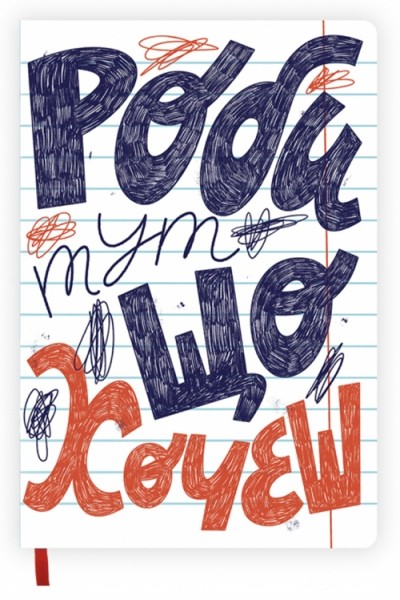 Роби
тут
що
Хочеш